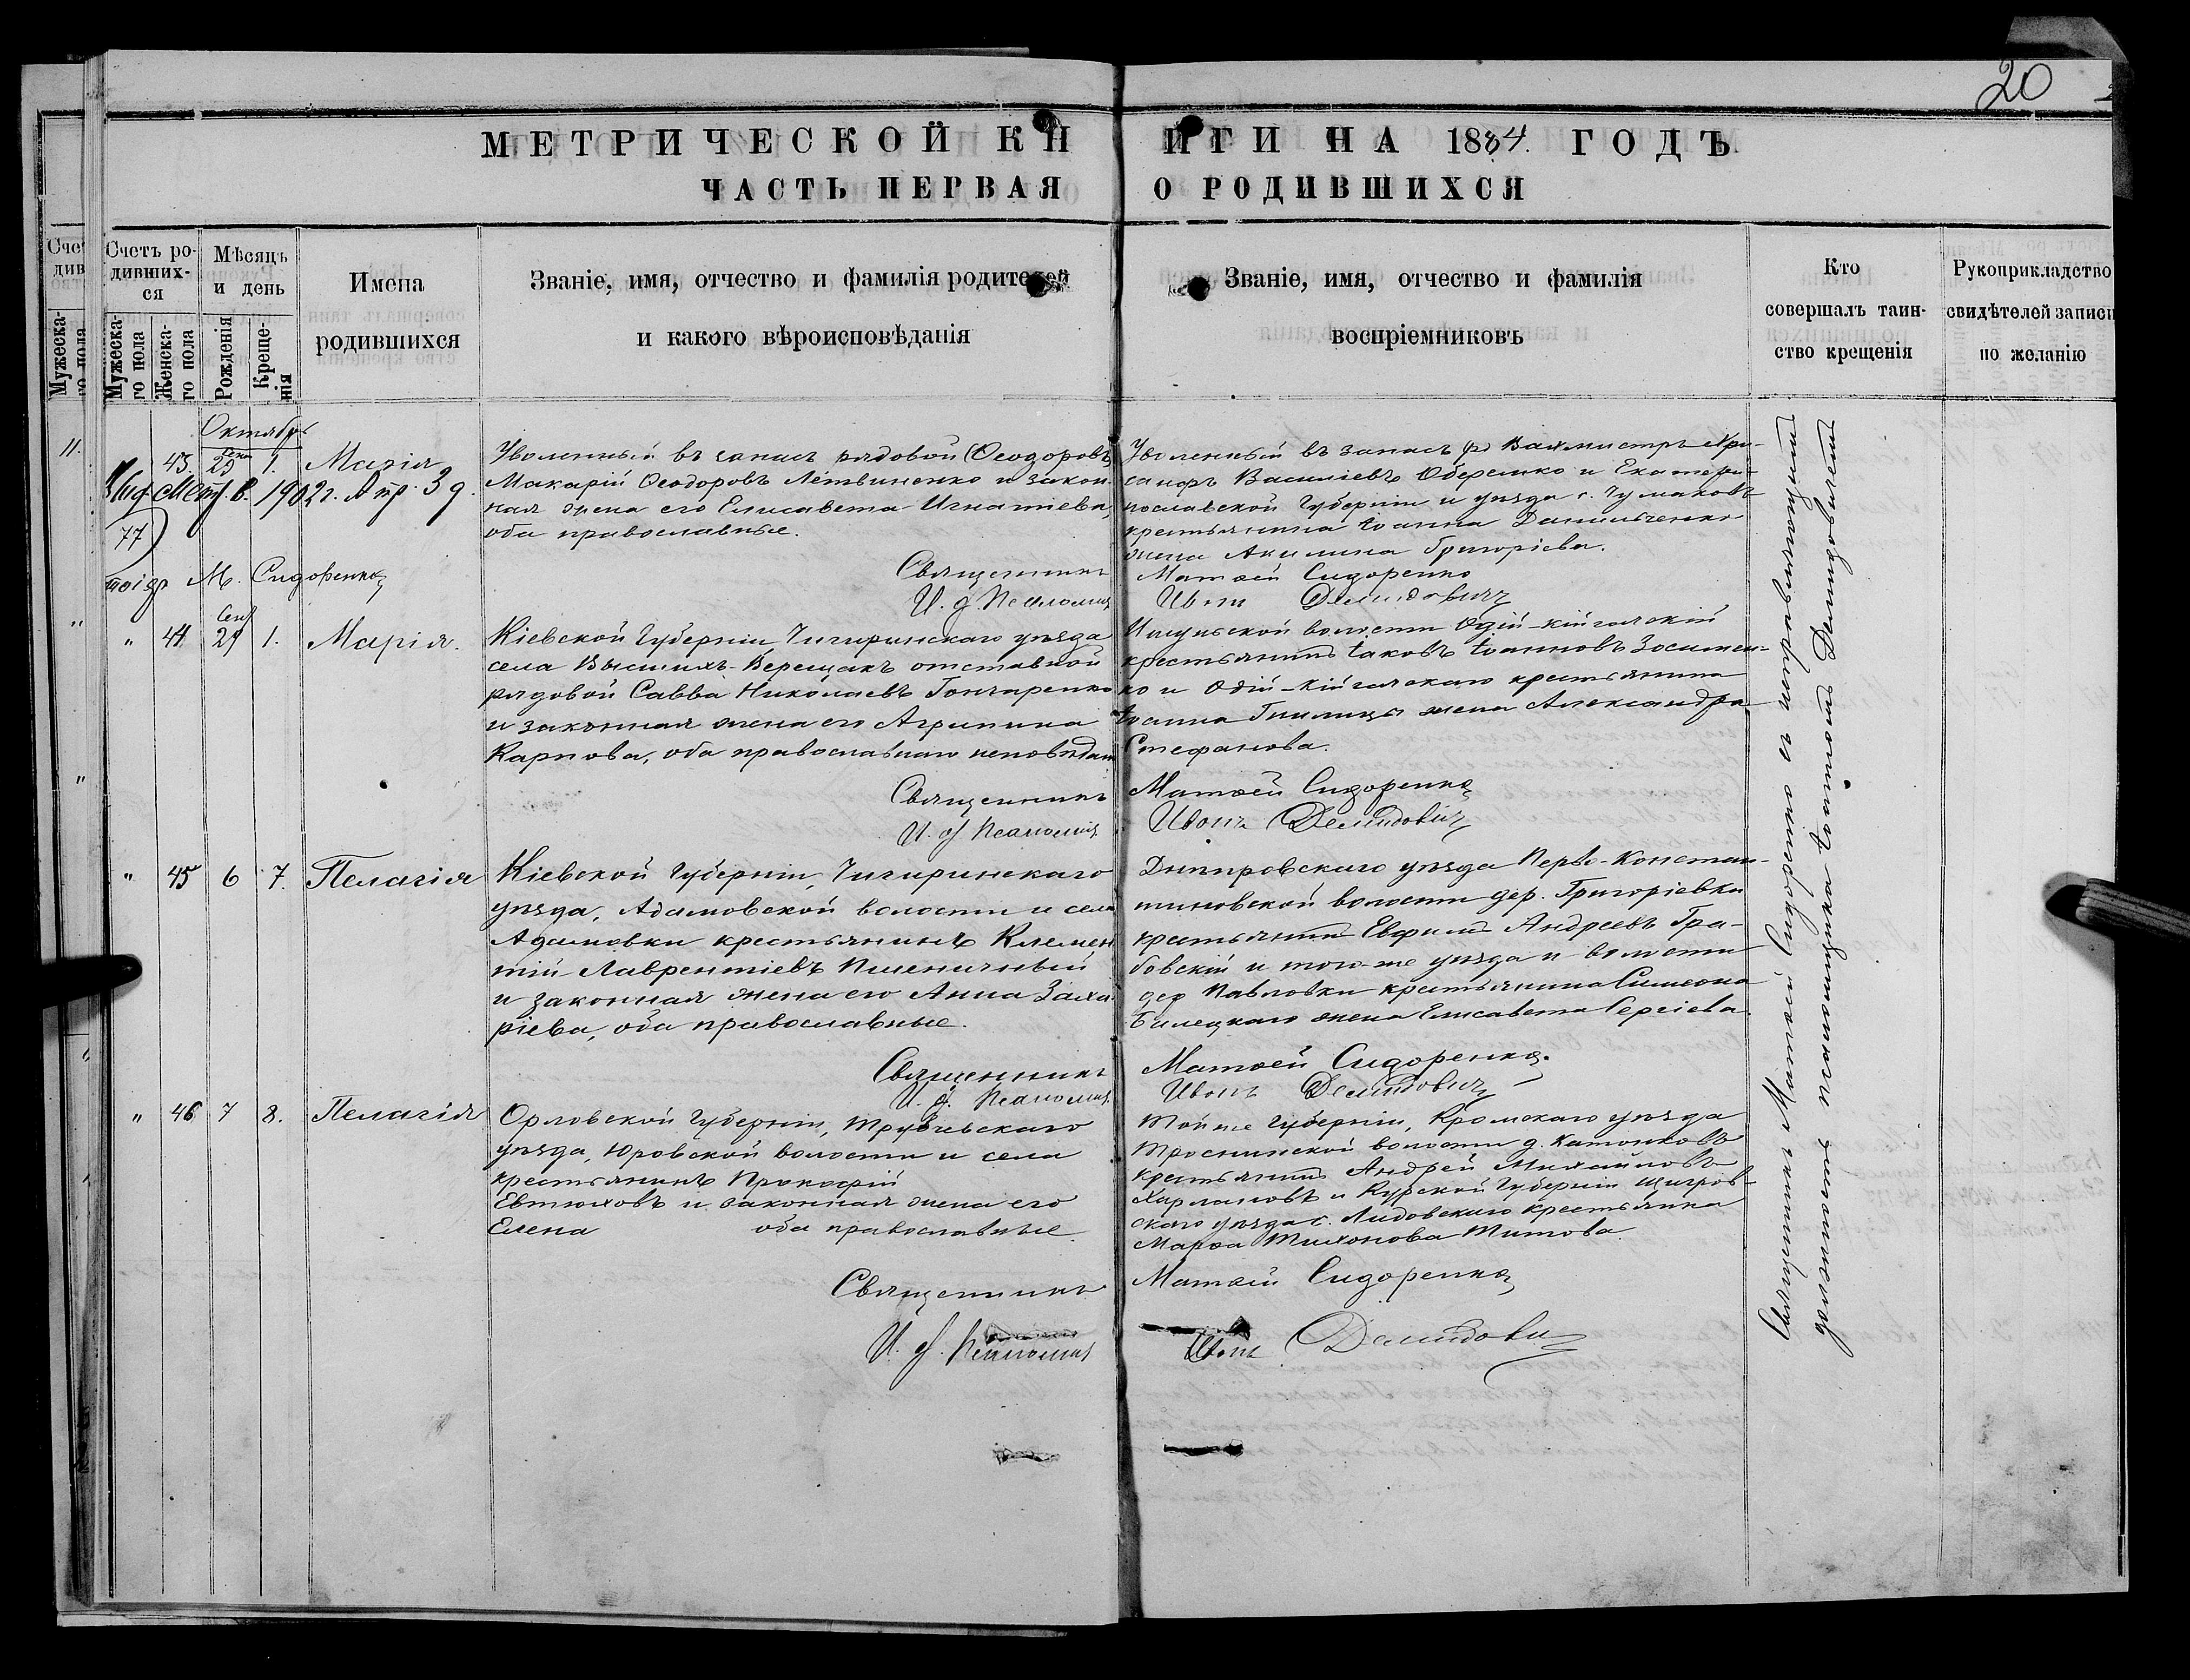 20
МЕТРИЧЕСКОЙ КНИГИ НА 1884 ГОДЪ
ЧАСТЬ ПЕРВАЯ О РОДИВШИХСЯ
Счетъ ро-
дивших-
ся
Мужеска-
го пола
Женска-
го пола
Мѣсяцъ
и день
Рожденія
Креще-
нія
Имена
родившихся
Званіе, имя, отчество и фамилія родителей
и какого вѣроисповѣданія
Званіе, имя, отчество и фамилія
воспріемниковъ
Кто
совершалъ таин-
ство крещенія
Рукоприкладство
свидѣтелей записи
по желанію
Октябрь
43. 1. Марія
Выд. Мет. В. 1902 г. Апр. 3 д.
77
М. Сидоренко
Уволенный въ запасъ рядовой
Макарій Ѳеодоровъ Летвиненко и закон-
ная жена его Елисавета Игнатіева,
оба православные.
Священникъ
Уволенный въ запасъ Вахмистръ Хри-
санфъ Василіевъ и Екатери-
нославской Губерніи и уѣзда с. Чумаковъ
крестьянина Іоанна Данильченко
жена Акилина Григоріева.
Матѳей Сидоренко
Иванъ Демидовичъ
" 44 Сен. 29 1. Марія.
Кіевской Губерніи, Чигиринскаго уѣзда
села Высшихъ-Верещакъ отставной
рядовой Савва Николаевъ Гончаренко
и законная жена его Агрипина
Карпова, оба православнаго исповѣдан
Священникъ
волости
крестьянинъ Іаковъ Іоанновъ Зосимен-
ко и крестьянина
Іоанна Гнилицы жена Александра
Стефанова.
Матѳей Сидоренко
Иванъ Демидовичъ
" 45 6 7. Пелагія
Кіевской Губерніи, Чигиринскаго
уѣзда, Адамовской волости и села
Адамовки крестьянинъ Клемен
тій Лаврентіевъ Пшеничный
и законная жена его Анна Заха-
ріева, оба православные.
Священникъ
Днѣпровскаго уѣзда Перво-Констан-
тиновской волости дер. Григорьевки
крестьянинъ Евфимій Андреевъ Гра-
бовскій и того-же уѣзда и волости
дер. Павловки крестьянина Симеона
Билецкаго жена Елисавета Сергіева.
Матѳей Сидоренко.
Иванъ Демидовичъ
" 46 7 8. Пелагія
Орловской Губерніи, Трубчевскаго
уѣзда, Юровской волости и села
крестьянинъ Прокофій
Евтюховъ и законная жена его
Елена оба православные.
Священникъ
Той же Губерніи, Кромскаго уѣзда
Троснинской волости д.
крестьянинъ Андрей Михайловъ
Харламовъ и Курской Губерніи Щигров-
скаго уѣзда с. Лидовскаго крестьянка
Марѳа Тихонова Титова.
Матѳей Сидоренко
Иванъ Демидовичъ
Священникъ Матѳей Сидоренко съ исправляющимъ
должность псаломщика Іоанномъ Демидовичемъ